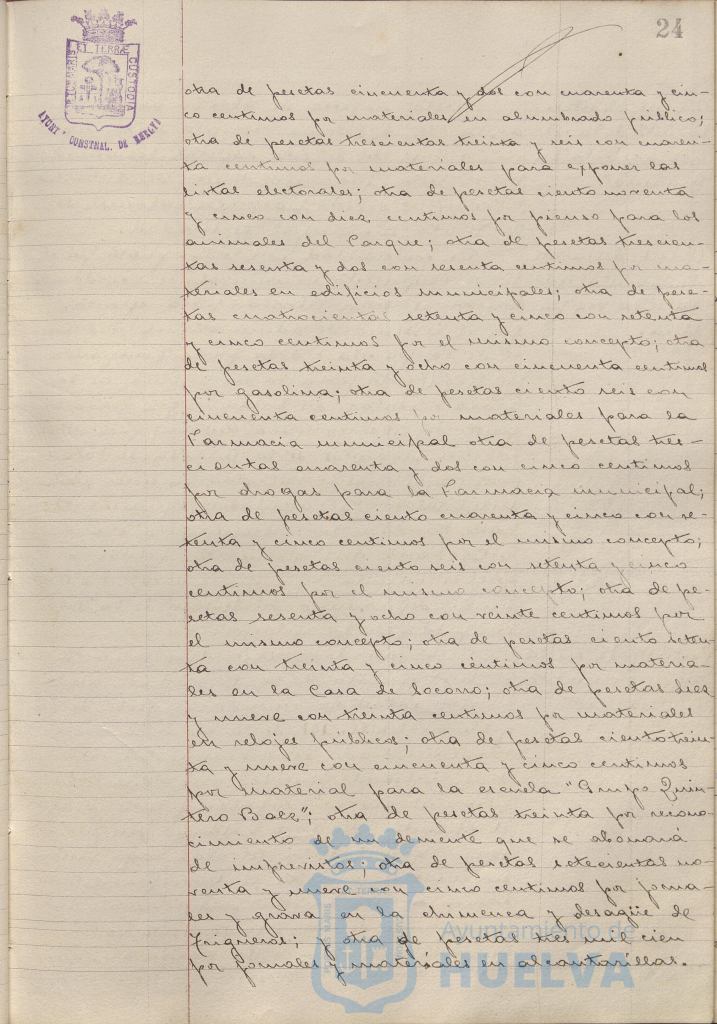 24
PORTUS MARIS ET TERRÆ CUSTODIA
AYUNTº CONSTNAL. DE HUELVA
otra de pesetas cincuenta y dos con cuarenta y cin-
co centimos por materiales en alumbrado público;
otra de pesetas trescientas treinta y seis con cuaren-
ta centimos por materiales para exponer las
listas electorales; otra de pesetas ciento noventa
y cinco con diez centimos por pienso para los
animales del Parque; otra de pesetas trescien-
tas sesenta y dos con sesenta centimos por ma-
teriales en edificios municipales; otra de pese-
tas cuatrocientas setenta y cinco con setenta
y cinco centimos por el mismo concepto; otra
de pesetas treinta y ocho con cincuenta centimos
por gasolina; otra de pesetas ciento seis con
cincuenta centimos por materiales para la
Farmacia municipal otra de pesetas tres-
cientas cuarenta y dos con cinco centimos
por drogas para la Farmacia municipal;
otra de pesetas ciento cuarenta y cinco con se-
tenta y cinco centimos por el mismo concepto;
otra de pesetas ciento seis con setenta y cinco
centimos por el mismo concepto; otra de pe-
setas sesenta y ocho con veinte centimos por
el mismo concepto; otra de pesetas ciento seten-
ta con treinta y cinco centimos por materia-
les en la Casa de Socorro; otra de pesetas diez
y nueve con treinta centimos por materiales
en relojes públicos; otra de pesetas ciento trein-
ta y nueve con cincuenta y cinco centimos
por material para la escuela "Grupo Quin-
tero Baez"; otra de pesetas treinta por recono-
cimiento de un demente que se abonará
de imprevistos; otra de pesetas setecientas no-
venta y nueve con cinco centimos por jorna-
les y grava en la chimenea y desagüe de
Trigueros; y otra de pesetas tres mil cien
por jornales y materiales en alcantarillas.
Ayuntamiento de
HUELVA